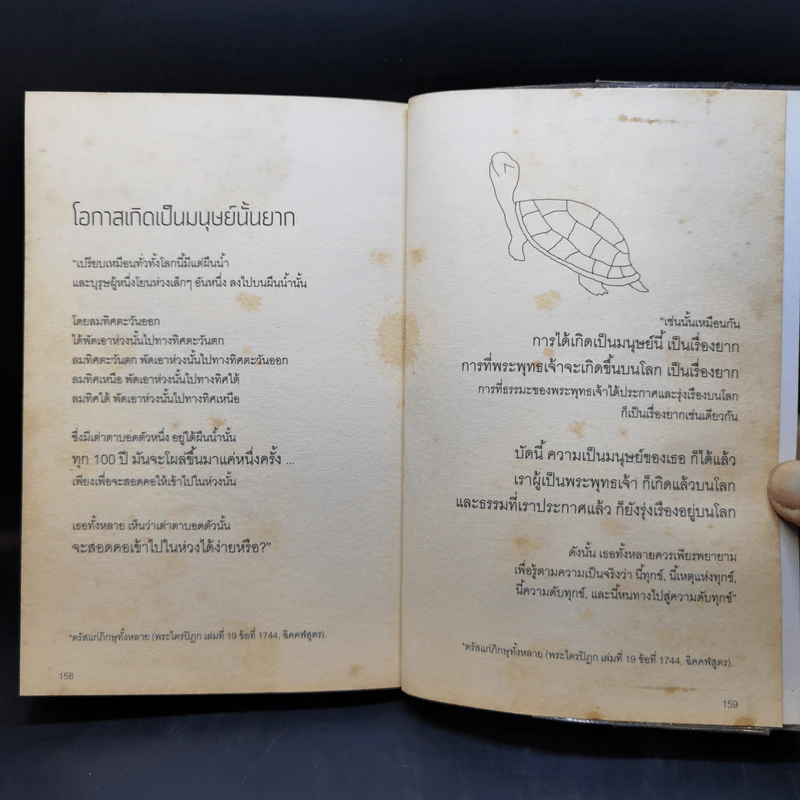 โอกาสเกิดเป็นมนุษย์นั้นยาก
"เปรียบเหมือนทั่วทั้งโลกนี้มีแต่ผืนน้ำ
และบุรุษผู้หนึ่งโยนห่วงเล็กๆ อันหนึ่ง ลงไปบนผืนน้ำนั้น
โดยลมทิศตะวันออก
ได้พัดเอาห่วงนั้นไปทางทิศตะวันตก
ลมทิศตะวันตก พัดเอาห่วงนั้นไปทางทิศตะวันออก
ลมทิศเหนือ พัดเอาห่วงนั้นไปทางทิศใต้
ลมทิศใต้ พัดเอาห่วงนั้นไปทางทิศเหนือ
ซึ่งมีเต่าตาบอดตัวหนึ่ง อยู่ใต้ผืนน้ำนั้น
ทุก 100 ปี มันจะโผล่ขึ้นมาแค่หนึ่งครั้ง ...
เพียงเพื่อจะสอดคอให้เข้าไปในห่วงนั้น
เธอทั้งหลาย เห็นว่าเต่าตาบอดตัวนั้น
จะสอดคอเข้าไปในห่วงได้ง่ายหรือ?"
*ตรัสแก่ภิกษุทั้งหลาย (พระไตรปิฎก เล่มที่ 19 ข้อที่ 1744, ฉิคคฬสูตร).
158
"เช่นนั้นเหมือนกัน
การได้เกิดเป็นมนุษย์นี้ เป็นเรื่องยาก
การที่พระพุทธเจ้าจะเกิดขึ้นบนโลก เป็นเรื่องยาก
การที่ธรรมะของพระพุทธเจ้าได้ประกาศและรุ่งเรืองบนโลก
ก็เป็นเรื่องยากเช่นเดียวกัน
บัดนี้ ความเป็นมนุษย์ของเธอ ก็ได้แล้ว
เราผู้เป็นพระพุทธเจ้า ก็เกิดแล้วบนโลก
และธรรมที่เราประกาศแล้ว ก็ยังรุ่งเรืองอยู่บนโลก
ดังนั้น เธอทั้งหลายควรเพียรพยายาม
เพื่อรู้ตามความเป็นจริงว่า นี้ทุกข์, นี้เหตุแห่งทุกข์,
นี้ความดับทุกข์, และนี้หนทางไปสู่ความดับทุกข์"
*ตรัสแก่ภิกษุทั้งหลาย (พระไตรปิฎก เล่มที่ 19 ข้อที่ 1744, ฉิคคฬสูตร).
159